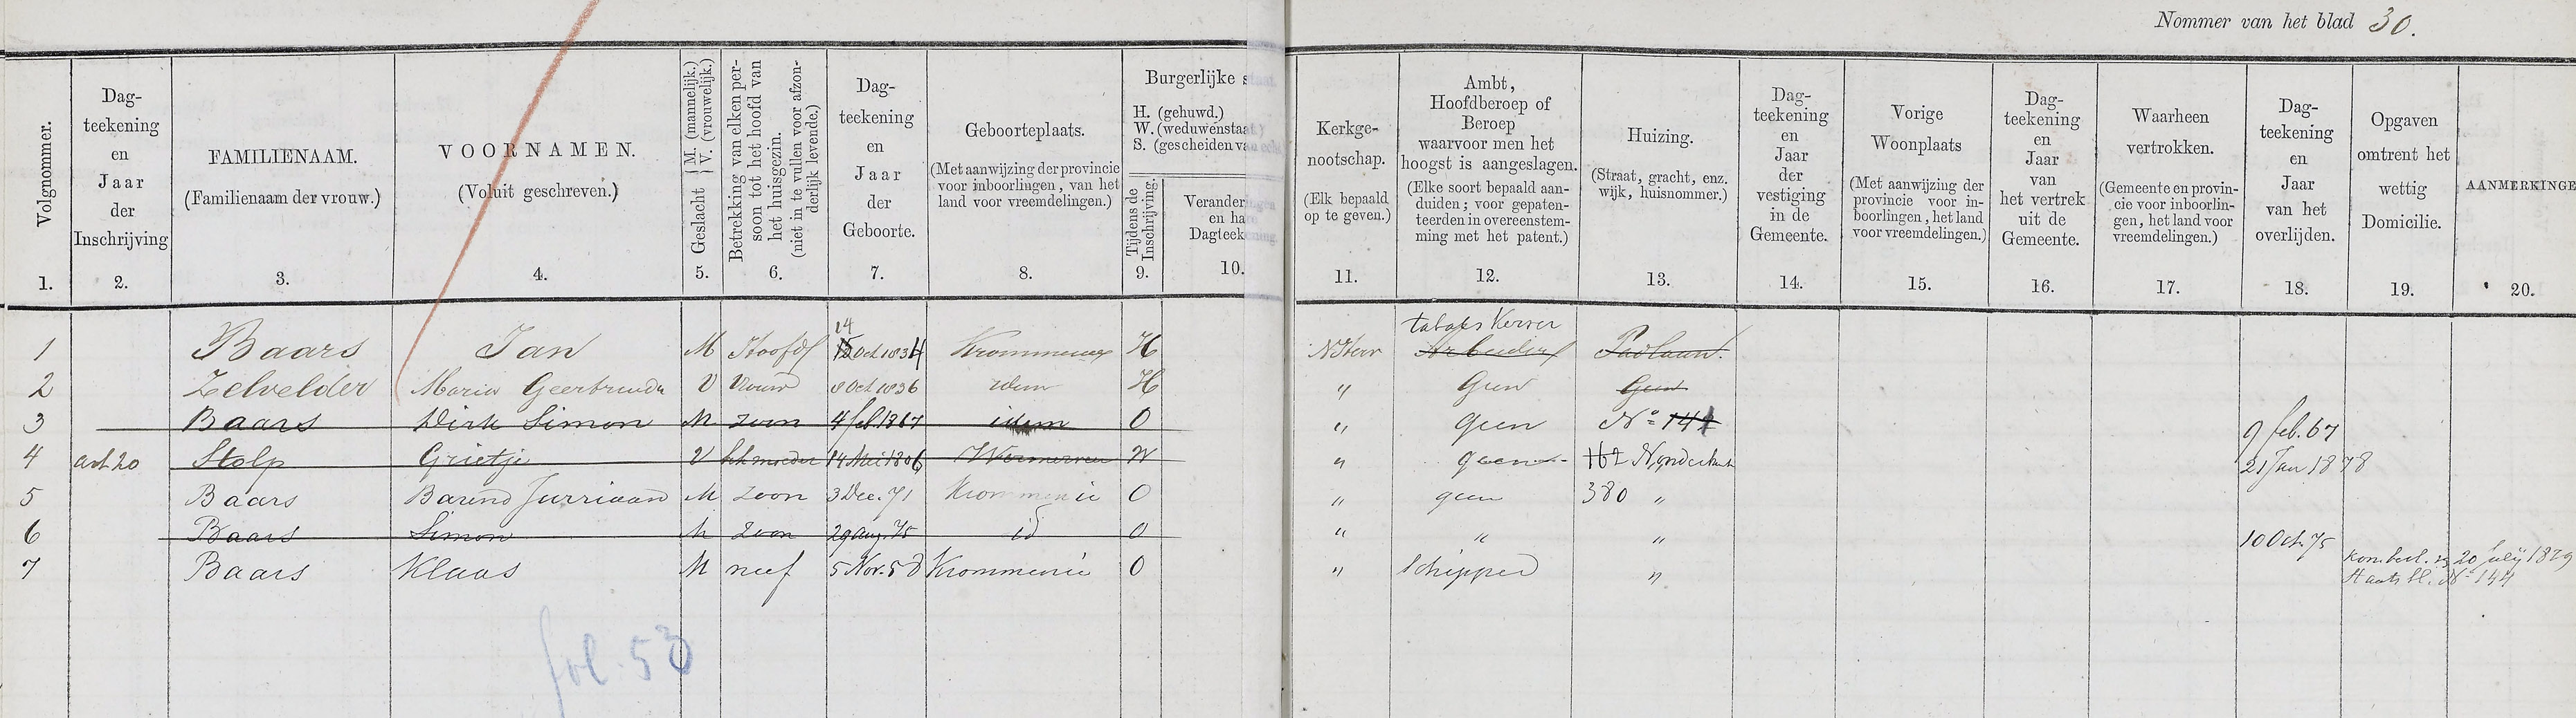 Nommer van het blad 30.
Volgnommer.
1.
Dag-
teekening
en
Jaar
der
Inschrijving
2.
FAMILIENAAM.
(Familienaam der vrouw.)
3.
VOORNAMEN.
(Voluit geschreven.)
4.
Geslacht { M. (mannelijk.)
V. (vrouwelijk.)
5.
Betrekking van elken per-
soon tot het hoofd van
het huisgezin.
(niet in te vullen voor afzon-
derlijk levende.)
6.
Dag-
teekening
en
Jaar
der
Geboorte.
7.
Geboorteplaats.
(Met aanwijzing der provincie
voor inboorlingen, van het
land voor vreemdelingen.)
8.
Burgerlijke s
H. (gehuwd.)
W. (weduwenstaat
S. (gescheiden va
Tijdens de
Inschrijving.
9.
Verander
en ha
Dagteek
10.
Kerkge-
nootschap.
(Elk bepaald
op te geven.)
11.
Ambt,
Hoofdberoep of
Beroep
waarvoor men het
hoogst is aangeslagen.
(Elke soort bepaald aan-
duiden; voor gepaten-
teerden in overeenstem-
ming met het patent.)
12.
Huizing.
(Straat, gracht, enz.
wijk, huisnommer.)
13.
Dag-
teekening
en
Jaar
der
vestiging
in de
Gemeente.
14.
Vorige
Woonplaats
(Met aanwijzing der
provincie voor in-
boorlingen, het land
voor vreemdelingen.)
15.
Dag-
teekening
en
Jaar
van
het vertrek
uit de
Gemeente.
16.
Waarheen
vertrokken.
(Gemeente en provin-
cie voor inboorlin-
gen, het land voor
vreemdelingen.)
17.
Dag-
teekening
en
Jaar
van het
overlijden.
18.
Opgaven
omtrent het
wettig
Domicilie.
19.
AANMERKINGE
20.
14 tabaks Kerver
1 Baars Jan M Hoofd 15 Oct 1834 Krommenie H NHerv Arbeider Padlaan.
2 Zelvelder Maria Geertruida V Vrouw 8 Oct 1836 idem H " Geen Geen
3 Baars Dirk Simon M zoon 4 feb 1867 idem O " geen No 141 9 feb. 67
4 art 20 Stolp Grietje V moeder 14 Mei 1806 Wormerveer W " geen 162 21 Jan 1878
5 Baars Barend Jurriaan M zoon 3 Dec. 71 Krommenie O " geen 380 "
6 Baars Simon M zoon 29 aug. 75 id O " " " 10 Oct. 75
7 Baars Klaas M neef 5 Nov. 58 Krommenie O " Schipper " 20 July 1829
Staatsbl. No 144
fol. 53